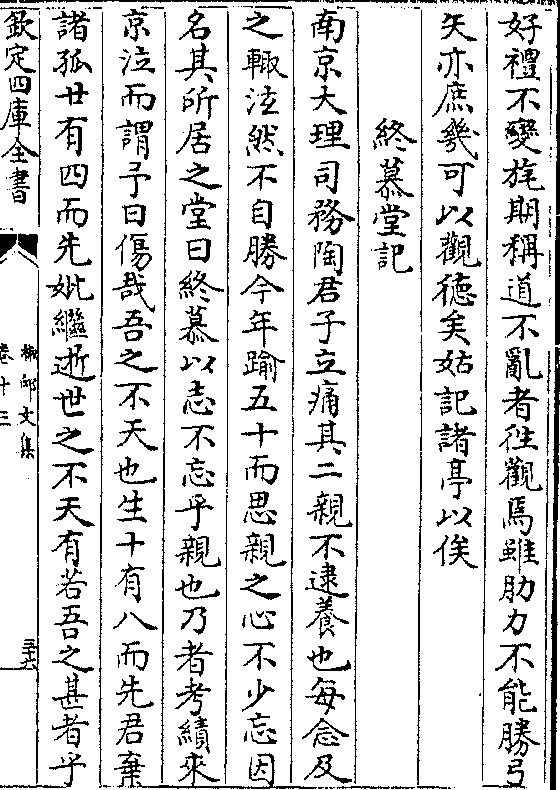 好禮不變旄期稱道不亂者往觀焉雖肋力不能勝弓
矢亦庶幾可以觀徳矣姑記諸亭以俟
終慕堂記
南京大理司務陶君子立痛其二親不逮養也每念及
之輙泫然不自勝今年踰五十而思親之心不少忘因
名其所居之堂曰終慕以志不忘乎親也乃者考績來
京泣而謂予曰傷哉吾之不天也生十有八而先君棄
諸孤廿有四而先妣繼逝世之不天有若吾之甚者乎
欽定四庫全書
椒邱文集
卷十三
三十六